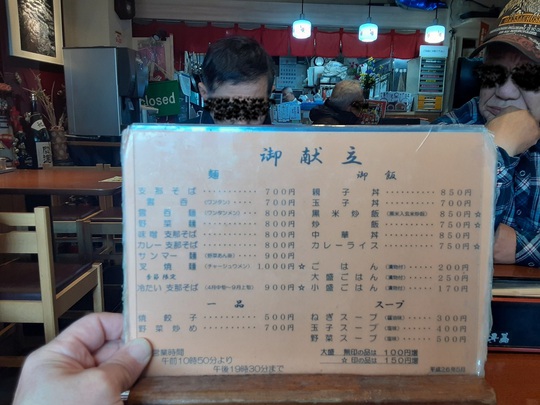 closed
御献立
麺
支那そば 700円
雲呑 (ワンタン) 700円
雲呑麺 (ワンタンメン) 800円
野菜麺 800円
味噌支那そば 800円
カレー支那そば 800円
サンマー麺 (野菜あん掛) 900円
叉焼麺 (チャーシュウメン) 1,000円☆
冷たい支那そば 900円☆
御飯
親子丼 850円
玉子丼 700円
黒米炒飯 (黒米入玄米炒飯) 850円☆
炒飯 750円☆
中華丼 850円
カレーライス 750円☆
ごはん (漬物付) 200円
大盛ごはん (漬物付) 250円
小盛ごはん (漬物付) 170円
一品
焼餃子 500円
野菜炒め 700円
スープ
ねぎスープ 300円
玉子スープ 400円
野菜スープ 500円
営業時間
午前10時50分より
午後19時30分まで
大盛 無印の品は 100円増
☆印の品は 150円増